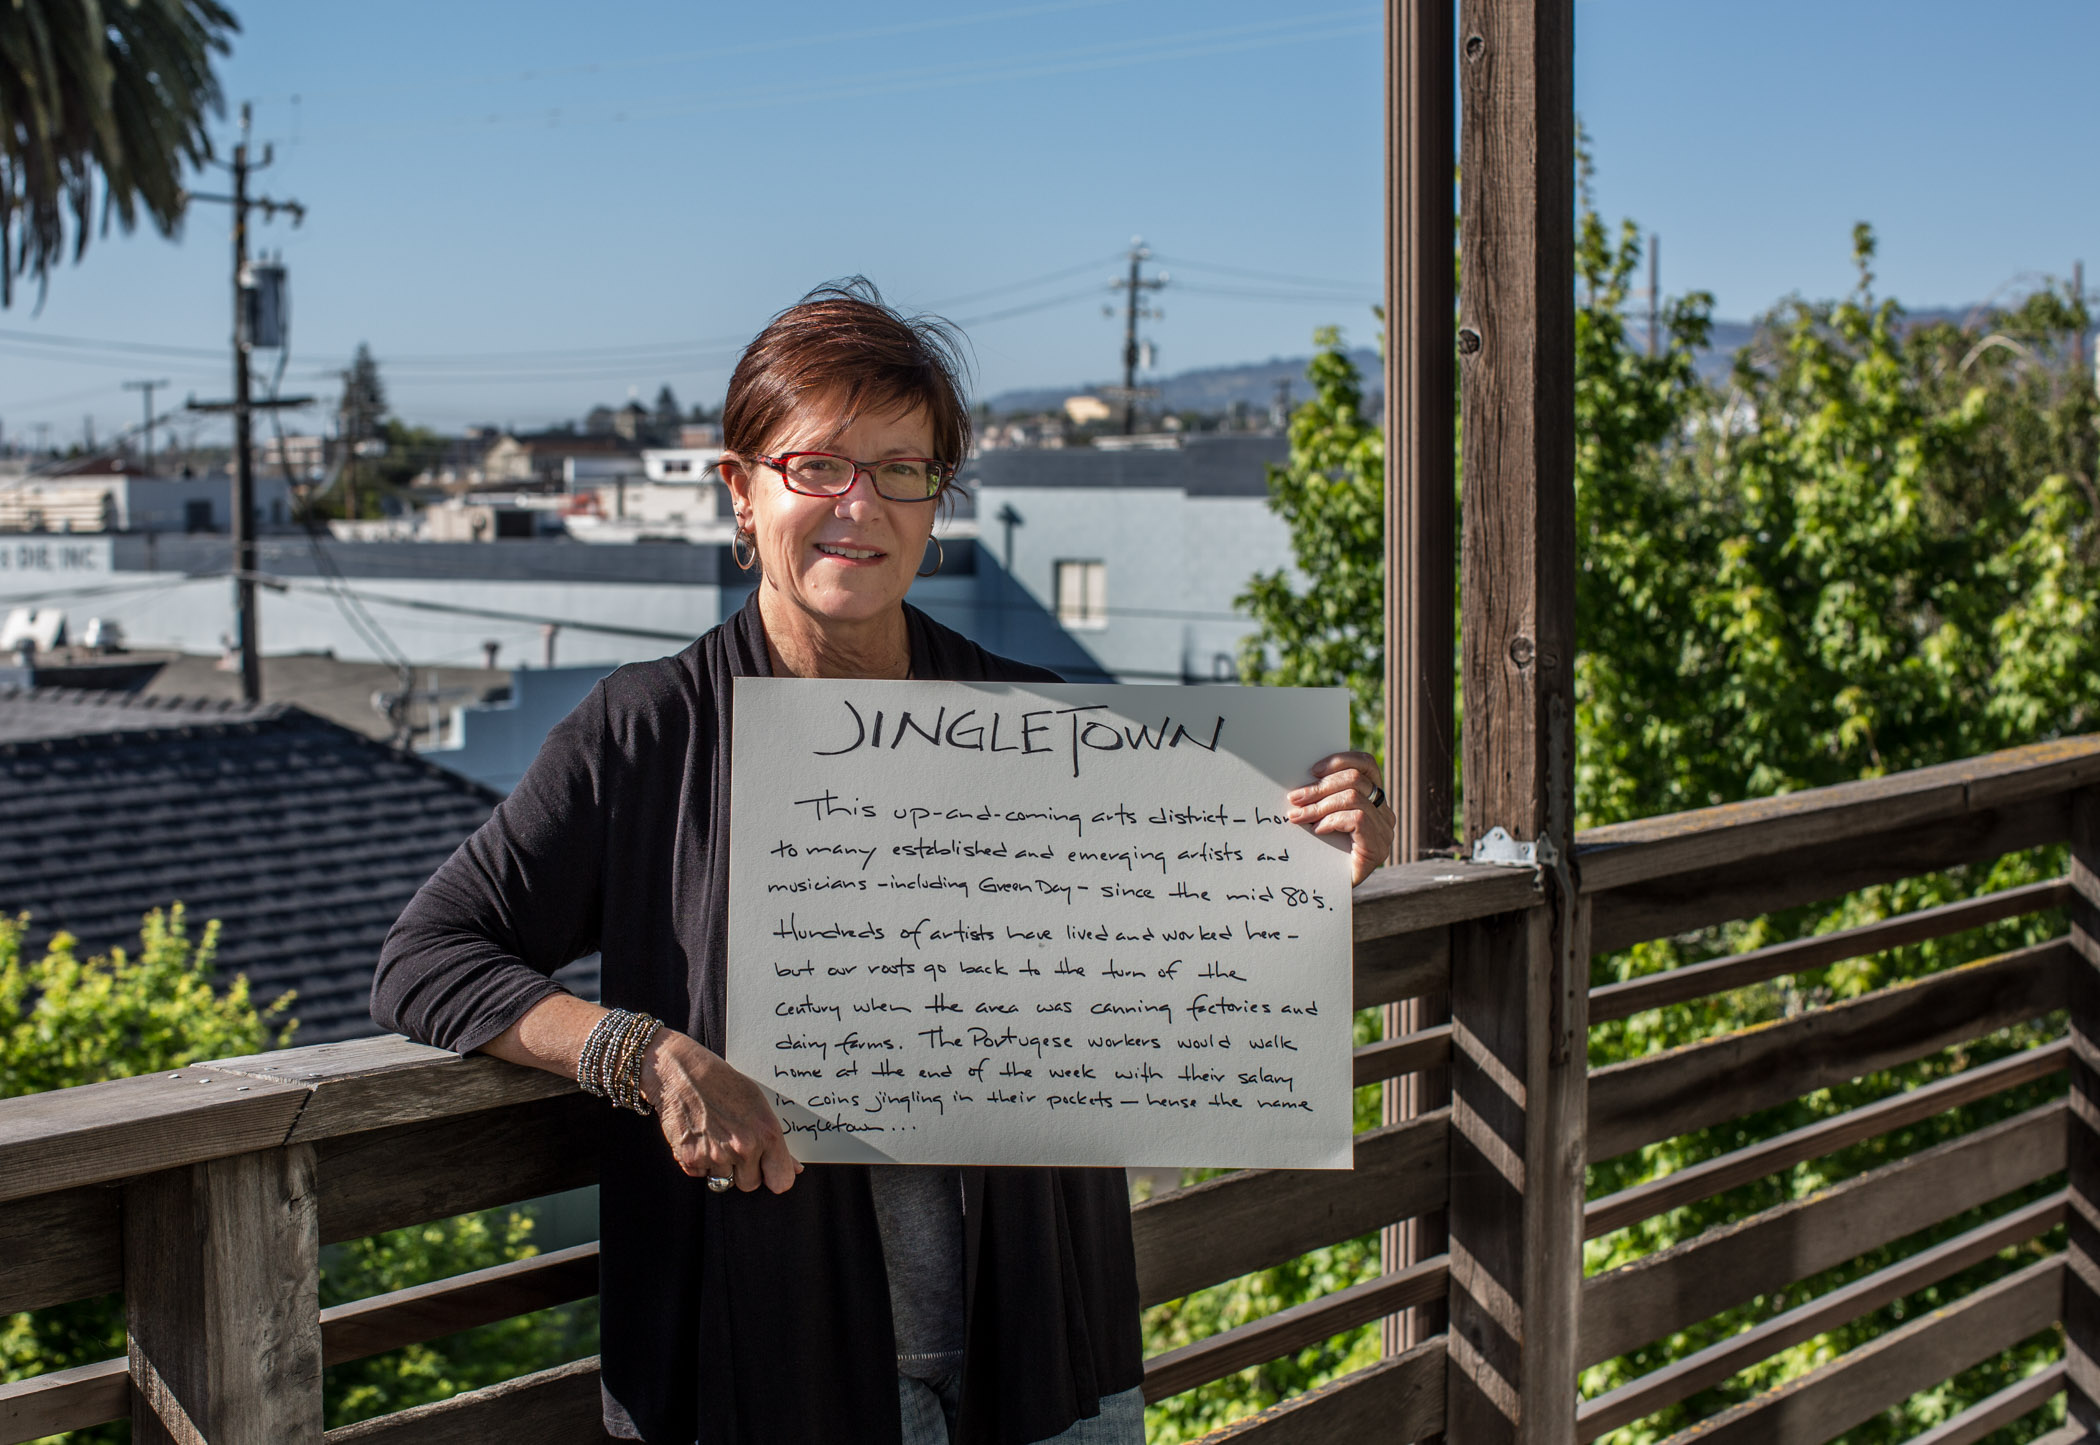 & DIE, INC.
JINGLETOWN
This up-and-coming arts district - ho
to many established and emerging artists and
musicians - including Green Day - since the mid 80's.
Hundreds of artists have lived and worked here -
but our roots go back to the turn of the
century when the area was canning factories and
dairy farms. The Portugese workers would walk
home at the end of the week with their salary
in coins jingling in their pockets - hense the name
Jingletown...